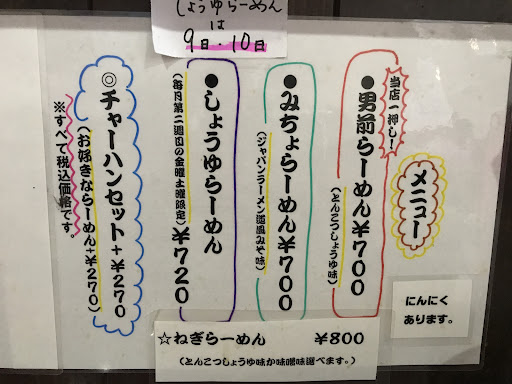 しょうゆらーめん
は
9日・10日
メニュー
当店一押し!
●男前らーめん¥700
(とんこつしょうゆ味)
●みちょらーめん¥700
(ジャパンラーメン道風みそ味)
●しょうゆらーめん
(毎月第二週目の金曜土曜限定)¥720
◎チャーハンセット+¥270
(お好きならーめん+¥270)
※すべて税込価格です。
にんにく
あります。
☆ねぎらーめん ¥800
(とんこつしょうゆ味か味噌味選べます。)